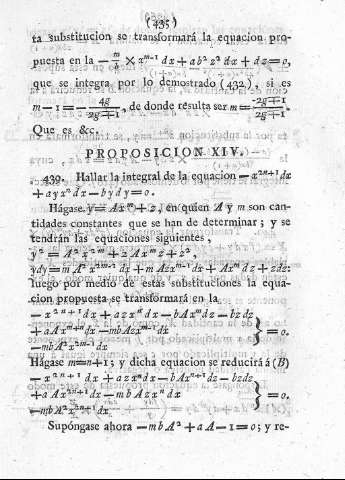 (435)
ta substitucion se transformará la equacion pro-
puesta en la — m/b × x^{m-1} dx + ab² z² dx + dz = 0,
que se integra por lo demostrado (432), si es
m — 1 = — 4g/2g+1, de donde resulta ser m = -2g+1/2g+1.
Que es &c.
PROPOSICION XIV.
439. Hallar la integral de la equacion — x^{2n+1} dx
+ ayxⁿ dx — bydy = 0.
Hágase y = Axᵐ + z, en quien A y m son can-
tidades constantes que se han de determinar; y se
tendrán las equaciones siguientes,
y² = A² x^{2m} + 2Axᵐz + z²,
ydy = mA² x^{2m-1} dx + mAzx^{m-1} dx + Axᵐ dz + zdz:
luego por medio de estas substituciones la equa-
cion propuesta se transformará en la
— x^{2n+1} dx + azxⁿ dx — bAxᵐ dz — bzdz
+ aAx^{m+n} dx — mbAzx^{m-1} dx } = 0.
— mbA² x^{2m-1} dx
Hágase m = n+1; y dicha equacion se reducirá á (B)
— x^{2n+1} dx + azxⁿ dx — bAx^{n+1} dz — bzdz
+ aAx^{2n+1} dx — mbAzxⁿ dx } = 0.
— mbA² x^{2n+1} dx
Supóngase ahora — mbA² + aA — 1 = 0; y re-